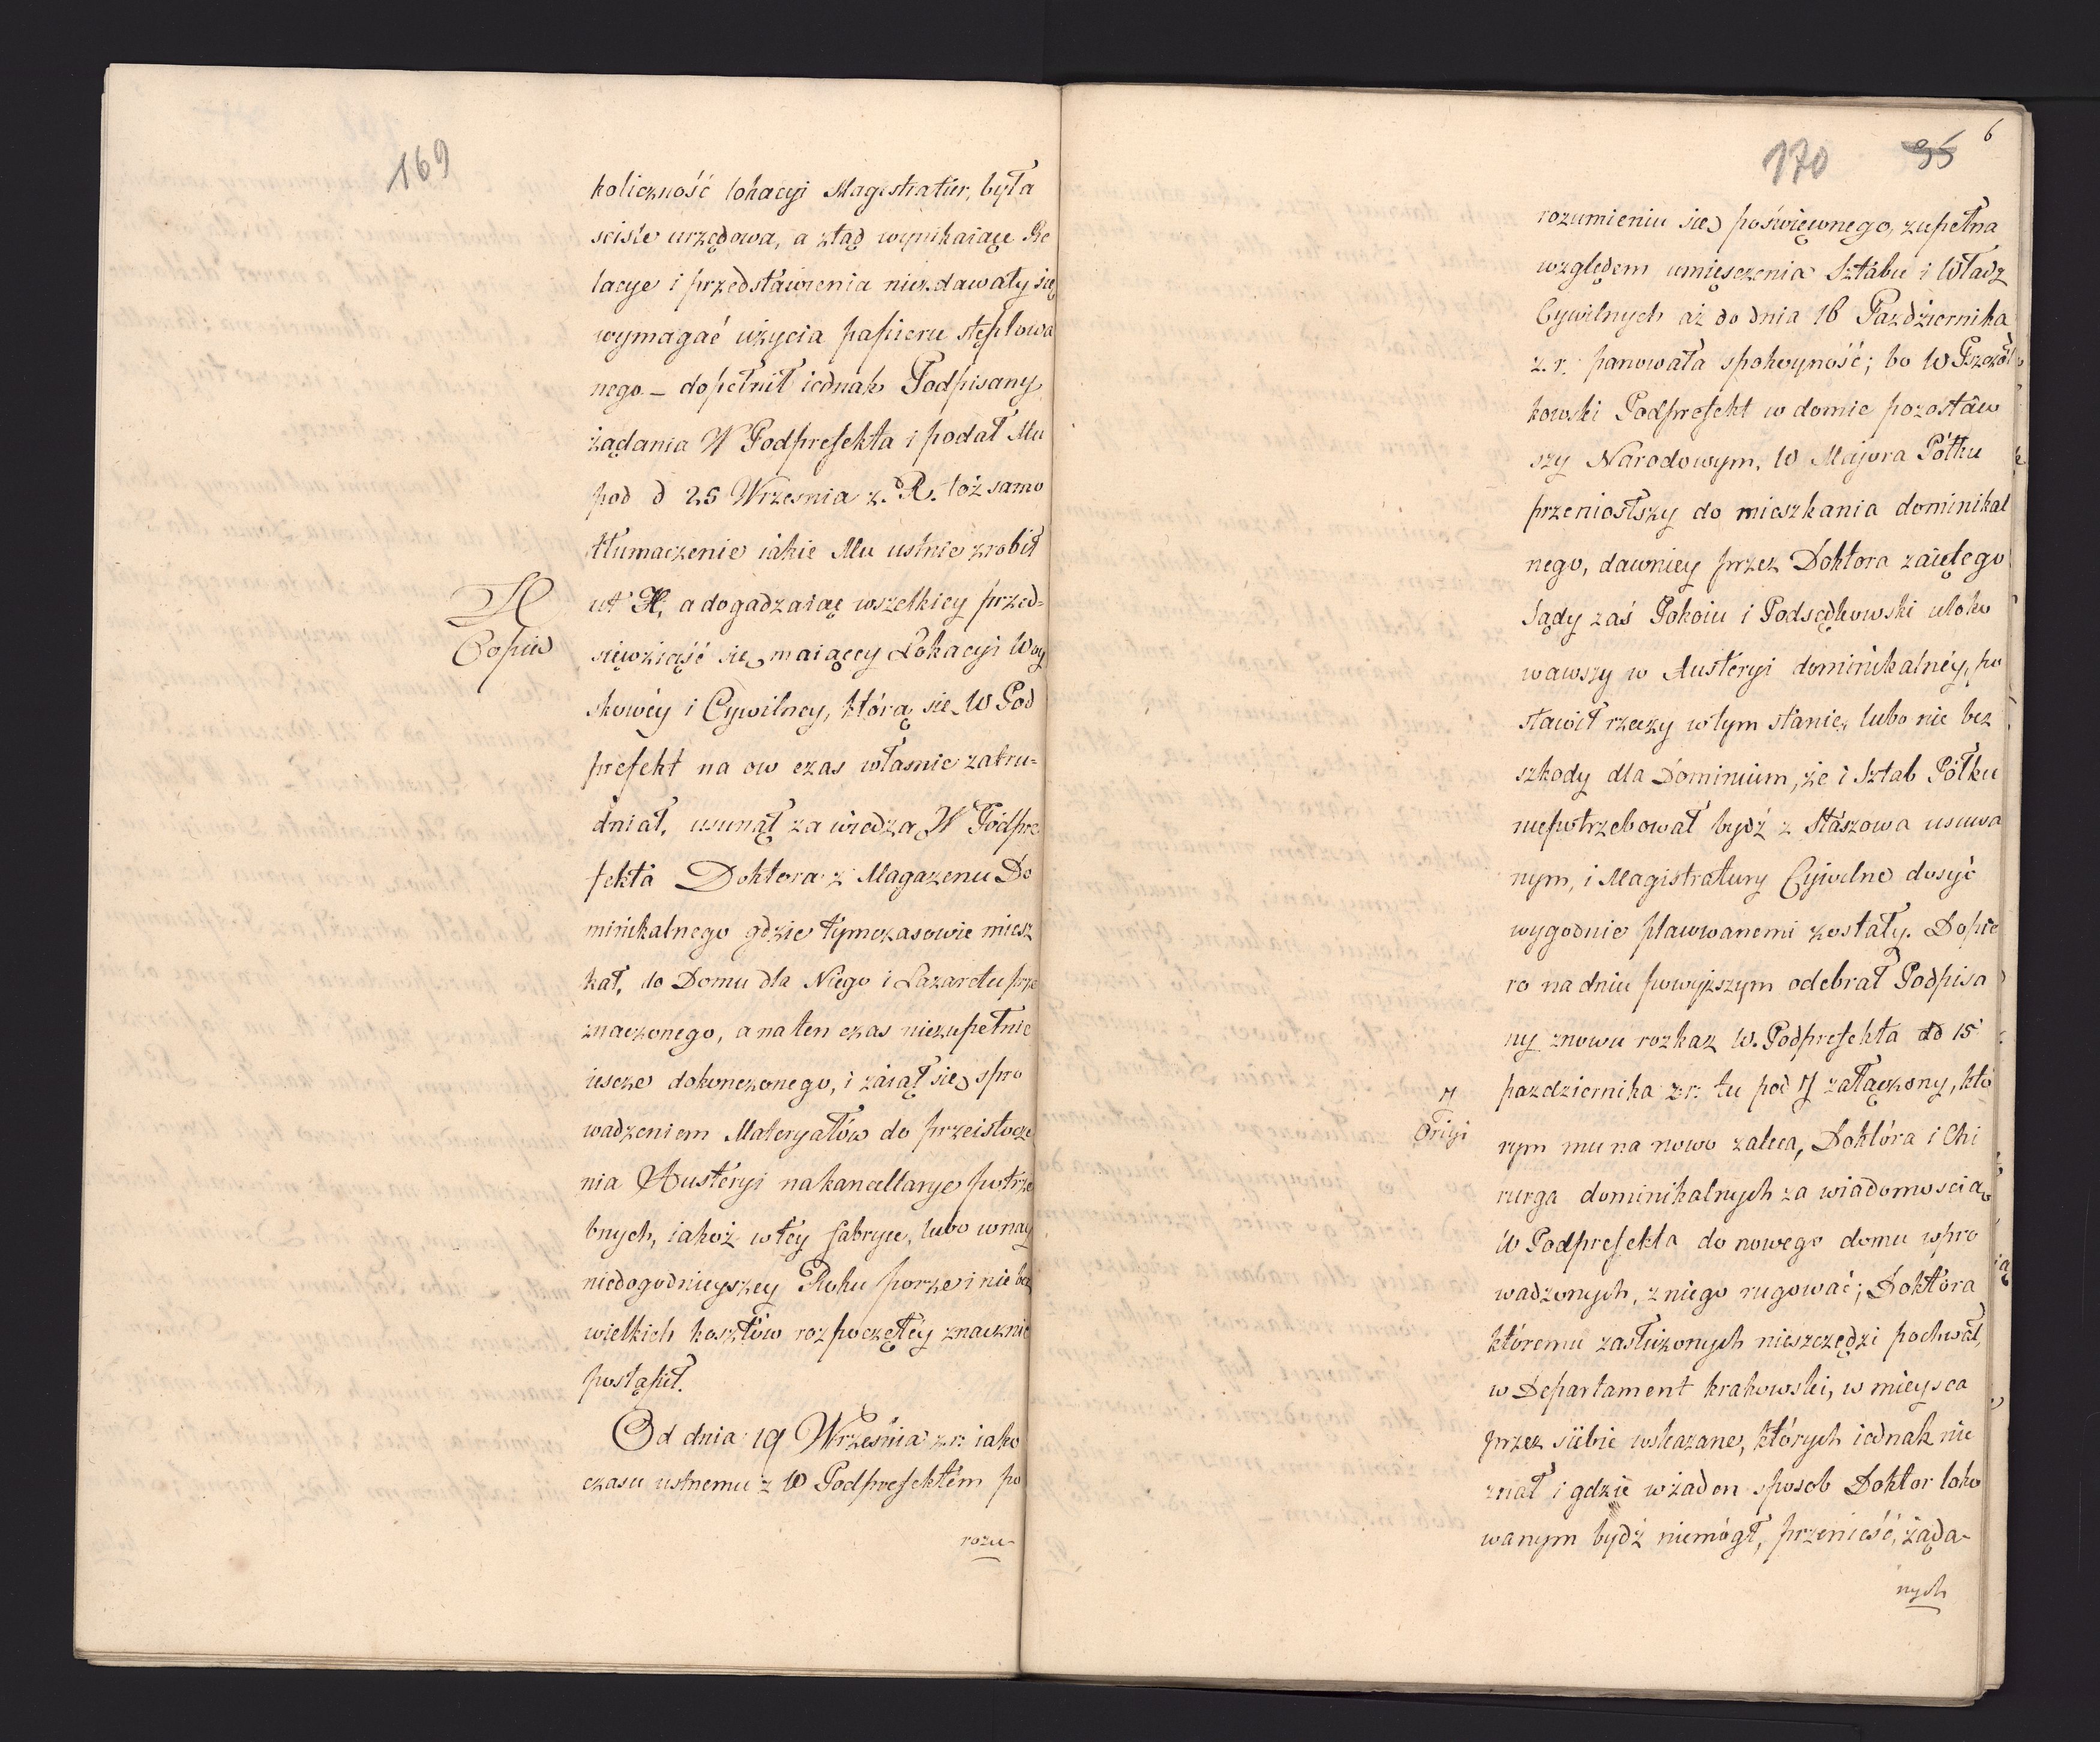 169
koliczność lokacyi Magistratur, była
sciśle urzędowa, a ztąd wynikaiące Re
lacye i przedstawienia niezdawały się
wymagać użycia papieru stęplowa
nego – dopełnił iednak Podpisany
żądania W Podprefekta i podał Mu
pod d 25 Wrzesnia z. R. toż samo
tłumaczenie iakie Mu ustnie zrobił
H
Copia
ut H, a dogadzaiąc wszelkiey przed=
sięwziąść się maiącey Lokacyi Woy
skowéy i Cywilney, którą się W Pod
prefekt na ow czas własnie zatru=
dniał, usunął za wiedzą W Podpre
fekta Doktora z Magazenu Do
minikalnego gdzie tymczasowie miesz
kał, do Domu dla Niego i Lazaretu prze
znaczonego, a na ten czas niezupełnie
ieszcze dokonczonego, i zaiął się spro
wadzeniem Materyałów do przeistocze
nia Austeryi na kancellarye potrze
bnych, iakoż w téy fabryce, lubo w nay
niedogodnieyszey Roku porze i nie bez
wielkich kosztów rozpoczętéy znacznie
postąpił.
Od dnia 19 Września z.r. iako
czasu ustnemu z W Podprefektem po
rozu-
170 35 6
rozumieniu się poświęconego, zupełna
względem umięsczenia Sztabu i Władz
Cywilnych aż do dnia 16 Pazdziernika
z. r. panowała spokoyność; bo W Pszczół
kowski Podprefekt w domie pozostaw
szy Narodowym, W Majora Półku
przeniosłszy do mieszkania dominikal
nego, dawniey przez Doktora zaiętego
Sądy zaś Pokoiu i Podsędkowski uloko
wawszy w Austeryi dominikalnéy, po
stawił rzeczy w tym stanie, lubo nie bez
szkody dla Dominium, że i Sztab Półku
niepotrzebował bydź z Staszowa usuwa
nym, i Magistratury Cywilne dosyć
wygodnie plawwanemi zostały. Dopie
ro na dniu powyższym odebrał Podpisa
ny znowu rozkaz W. Podprefekta dd 15
7
Origi
pazdziernika z.r. tu pod 7 załączony, któ
rym mu na nowo zaleca, Doktóra i Chi
rurga dominikalnych za wiadomoscią
W Podprefekta do nowego domu wpro
wadzonych, z niego rugować; Doktóra
któremu zasłużonych nieszczędzi pochwał,
w Departament krakowski, w mieysca
przez siebie wskazane, których iednak nie
znał i gdzie w żaden sposob Doktor loko
wanym bydź niemógł, przenieść, żąda-
nych